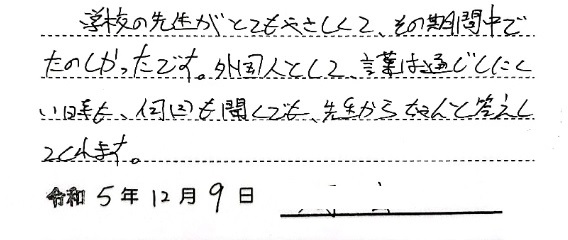 学校の先生がとてもやさしくて、その期間中で
たのしかったです。外国人として、言葉は通じしにく
い時も、何回も聞くても、先生からちゃんと答えし
てくれます。
令和 5 年 12 月 9 日